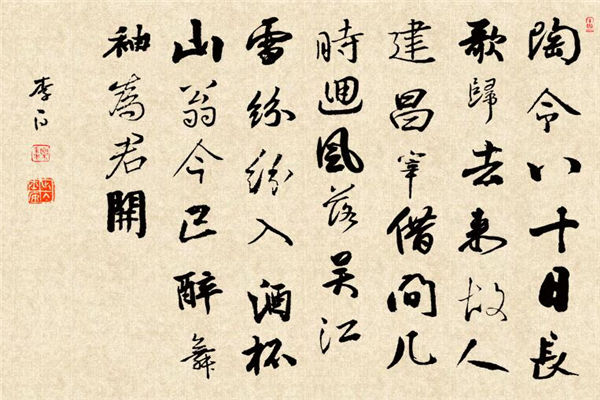 陶令八十日長
歌歸去來故人
建昌宰借問几
時迴風落吴江
雪紛紛入酒杯
山翁今已醉舞
袖為君開
李白